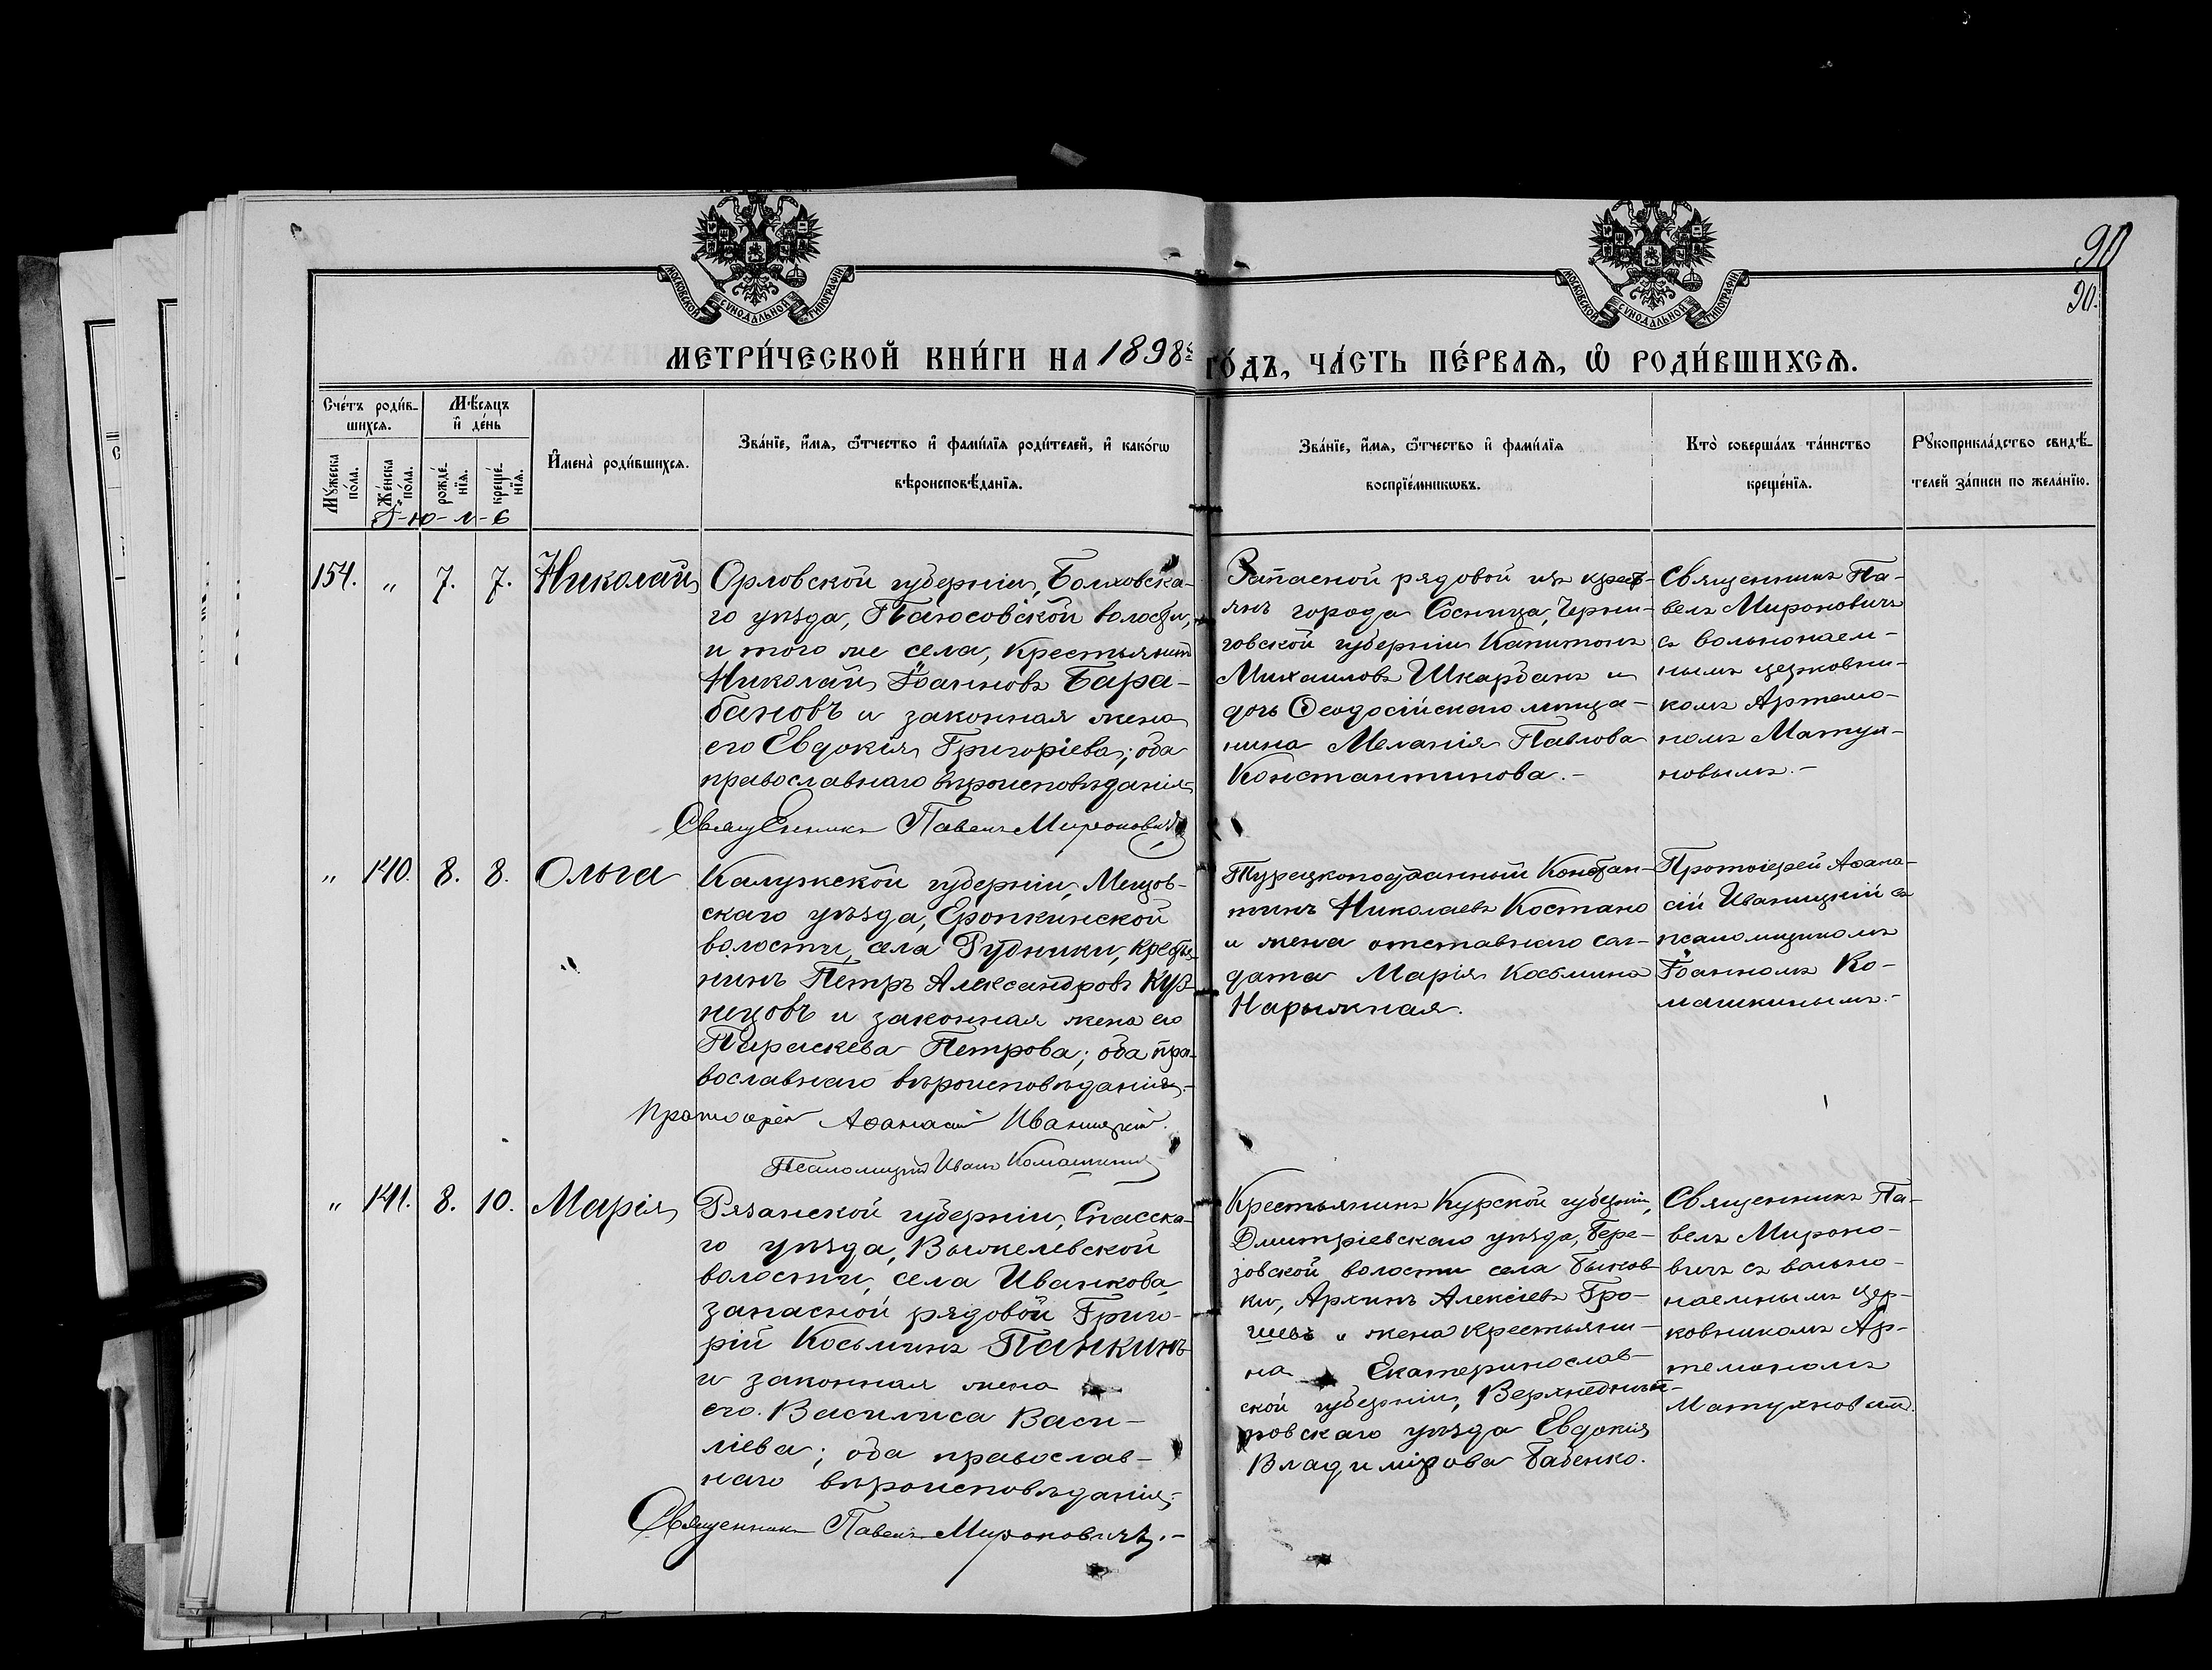 90
90.
МОСКОВСКОЙ СѴНОДАЛЬНОЙ ТИПОГРАФІИ
МОСКОВСКОЙ СѴНОДАЛЬНОЙ ТИПОГРАФІИ
МЕТРИ́ЧЕСКОЙ КНИ́ГИ НА 1898й ГО́ДЪ, ЧА́СТЬ ПЕ́РВАѦ, Ѡ҆ РОДИ́ВШИХСѦ.
Сче́тъ роди́в-
шихсѧ.
Мꙋ́жеска
по́ла.
Же́нска
по́ла.
Мѣ́сѧцъ
и҆ де́нь
рожде́-
нїѧ.
креще́-
нїѧ.
І-ю-л-ь
И҆мена̀ роди́вшихсѧ.
Зва́нїе, и҆́мѧ, ѻ҆́тчество и҆ фами́лїѧ роди́телей, и҆ како́гѡ
вѣроисповѣ́данїѧ.
Зва́нїе, и҆́мѧ, ѻ҆́тчество и҆ фами́лїѧ
воспрїе́мникѡвъ.
Кто̀ соверша́лъ та́инство
креще́нїѧ.
Рꙋкоприкла́дство свидѣ́-
телей за́писи по жела́нїю.
154. „ 7. 7. Николай
Орловской губерніи, Болховска-
го уѣзда, волости,
и того же села, крестьянинъ
Николай Іоанновъ Бара-
бановъ и законная жена
его Евдокія Григоріева; оба
православнаго вѣроисповѣданія
Священникъ Павелъ Мироновичъ
Запасной рядовой изъ крест-
янъ города Сосница, Черни-
говской губерніи Капитонъ
Михаиловъ Шкарбанъ и
дочь Ѳеодосійскаго мѣща-
нина Меланія Павлова
Константинова.-
Священникъ Па-
велъ Мироновичъ
съ вольнонаем-
нымъ церковни-
комъ Артемо-
номъ Матуя-
новымъ.-
„ 140. 8. 8. Ольга
Калужской губерніи, Мещов-
скаго уѣзда, Еропкинской
волости, села Рудники, крестья-
нинъ Петръ Александровъ Куз-
нецовъ и законная жена его
Параскева Петрова; оба пра-
вославнаго вѣроисповѣданія.-
Протоіерей Аѳанасій Иваницкій.
Псаломщикъ Иванъ Комашкинъ
Турецкоподданный Констан-
тинъ Николаевъ Костано
и жена отставнаго сол-
дата Марія Косьмина
Нарыжная.
Протоіерей Аѳана-
сій Иваницкій съ
псаломщикомъ
Іоанномъ Ко-
машкинымъ.-
„ 141. 8. 10. Марія
Рязанской губерніи, Спасска-
го уѣзда, Выжелевской
волости, села Иванкова,
запасной рядовой Григо-
рій Косьминъ Панкинъ
и законная жена
его Василиса Васи-
ліева; оба православ-
наго вѣроисповѣданія;
Священникъ Павелъ Мироновичъ.-
Крестьянинъ Курской губерніи,
Дмитріевскаго уѣзда, Бере-
зовской волости села Быков-
ки, Архипъ Алексіевъ Гро-
и жена крестьяни-
на Екатеринослав-
ской губерніи, Верхнеднѣп-
ровскаго уѣзда Евдокія
Владимірова Бабенко.
Священникъ Па-
велъ Мироно-
вичъ съ вольно-
наемнымъ цер-
ковникомъ Ар-
темономъ
Матуяновымъ.